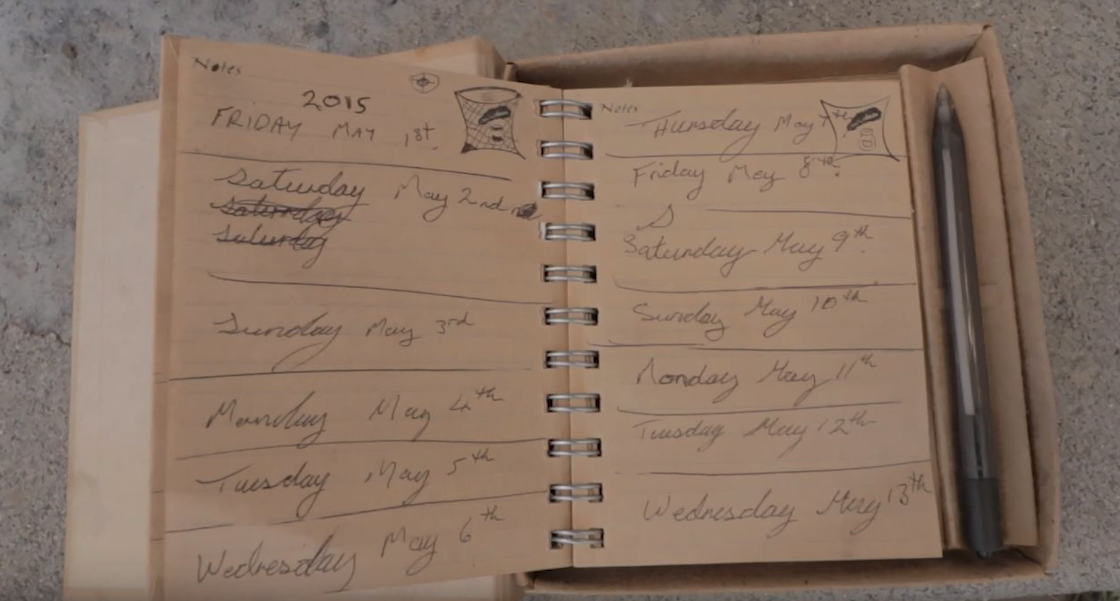 Notes
2015
FRIDAY MAY 1st.
Saturday May 2nd
Saturday
Saturday
Sunday May 3rd
Monday May 4th
Tuesday May 5th
Wednesday May 6th
Notes
Thursday May 7th
Friday May 8th.
S
Saturday May 9th.
Sunday May 10th
Monday May 11th
Tuesday May 12th
Wednesday May 13th